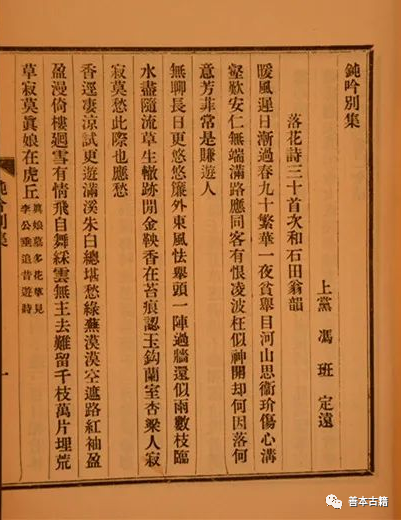 鈍吟別集
上黨 馮班 定遠
落花詩三十首次和石田翁韻
暖風遲日漸過春九十繁華一夜貧舉目河山思衞玠傷心溝
壑歎安仁無端滿路應同客有恨凌波枉似神開却何因落何
意芳菲常是賺遊人
無聊長日更悠悠簾外東風怯舉頭一陣過牆還似雨數枝臨
水盡隨流草生轍跡閒金鞅香在苔痕認玉鈎蘭室杏梁人寂
寂莫愁此際也應愁
香逕凄凉試更遊滿溪朱白總堪愁綠蕪漠漠空遮路紅袖盈
盈漫倚樓迴雪有情飛自舞綵雲無主去難留千枝萬片埋荒
草寂莫眞娘在虎丘
眞娘墓多花草見
李公垂追昔遊詩
鈍吟別集
一
善本古籍